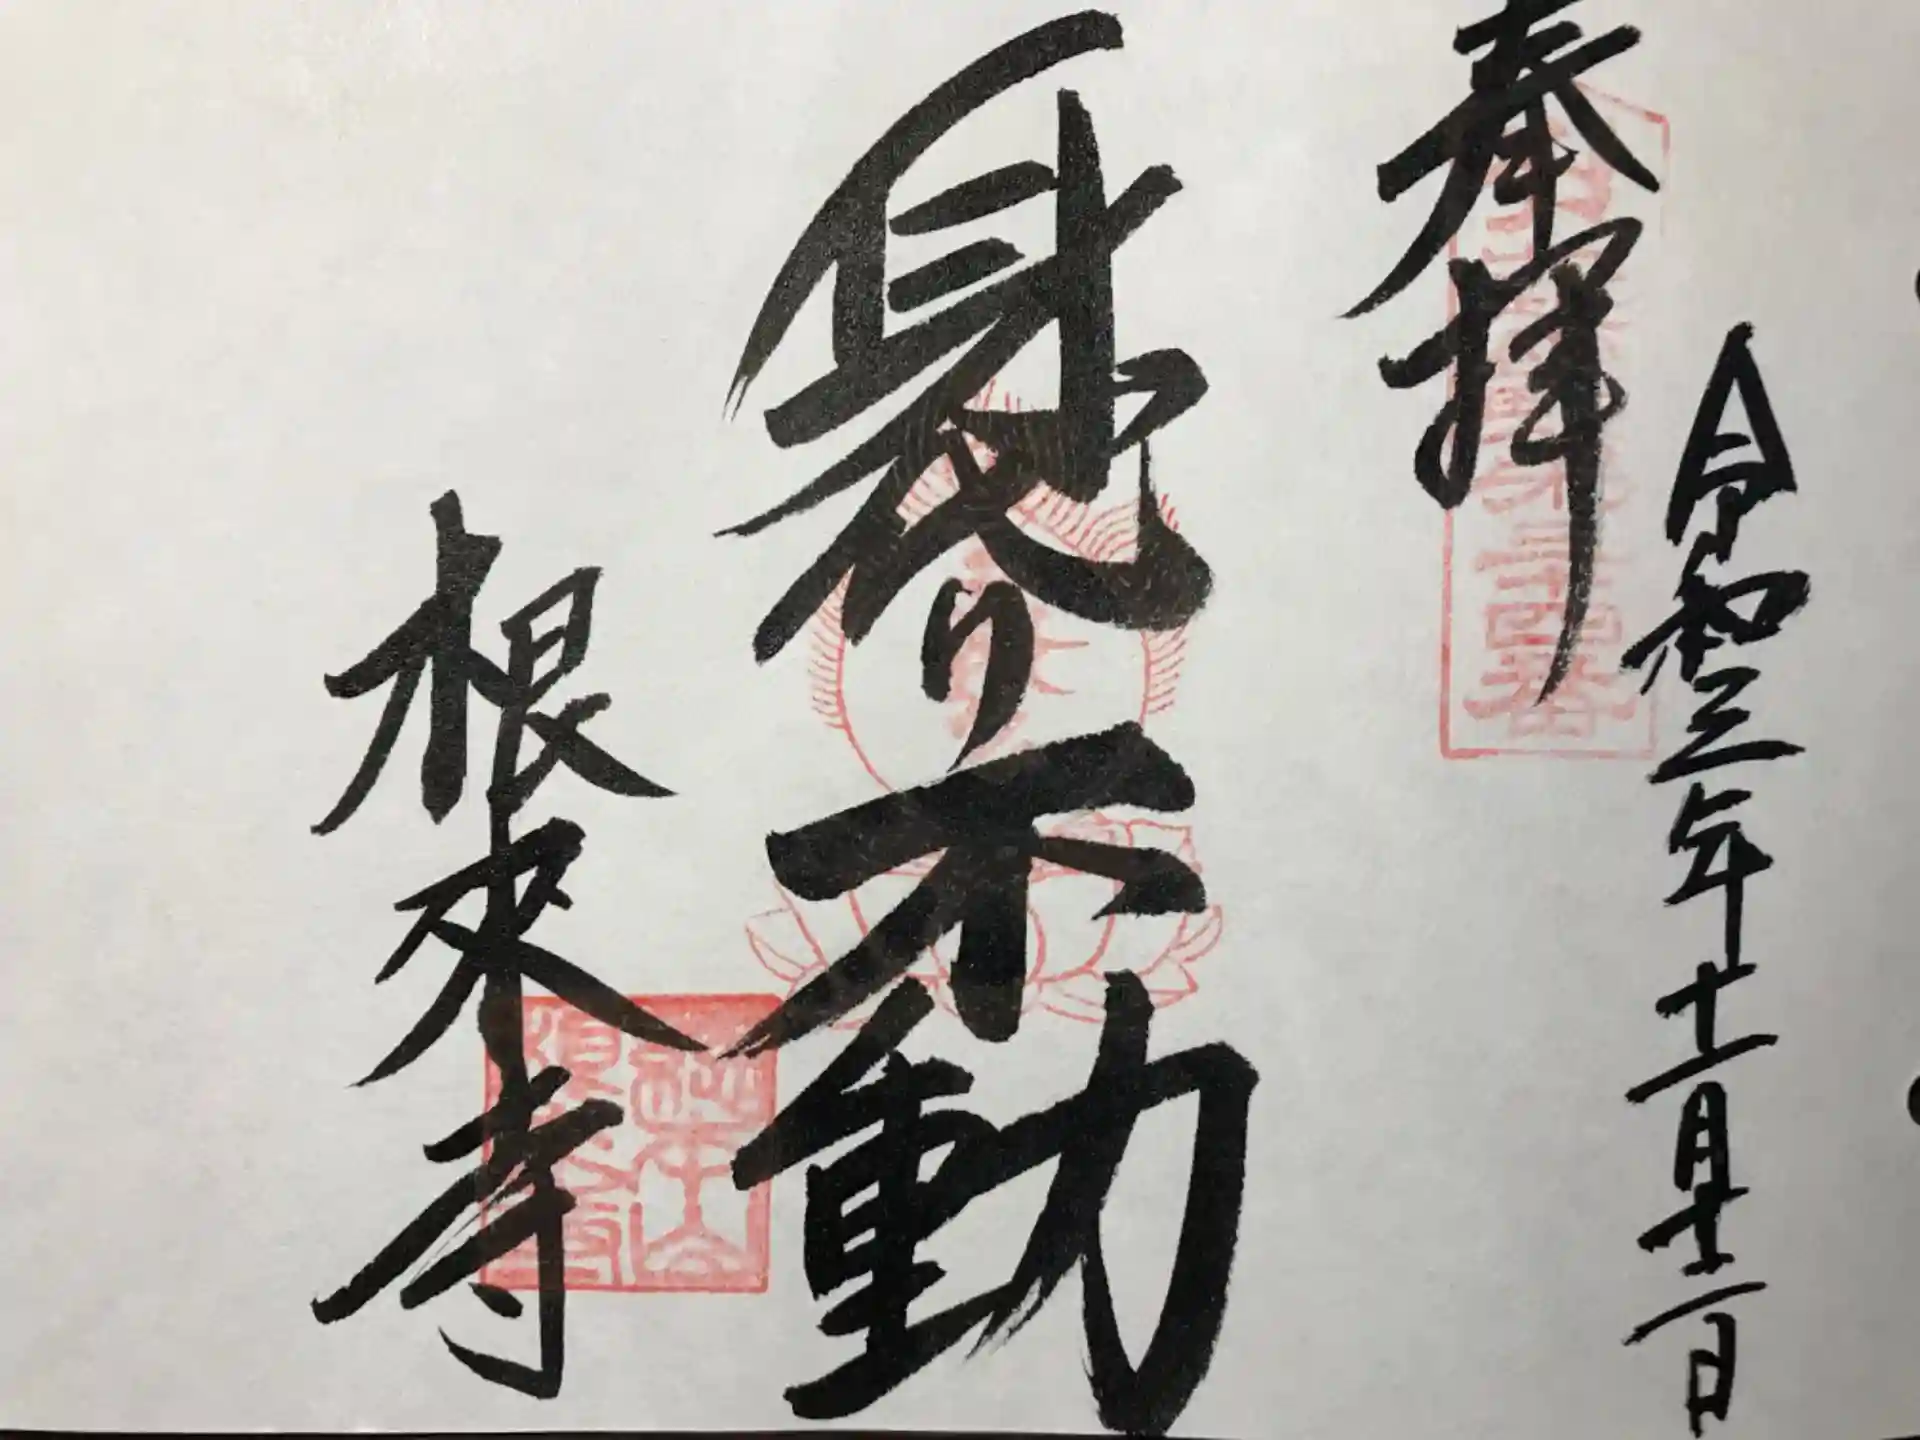 奉拝
令和三年十一月十二日
身代り不動
根来寺